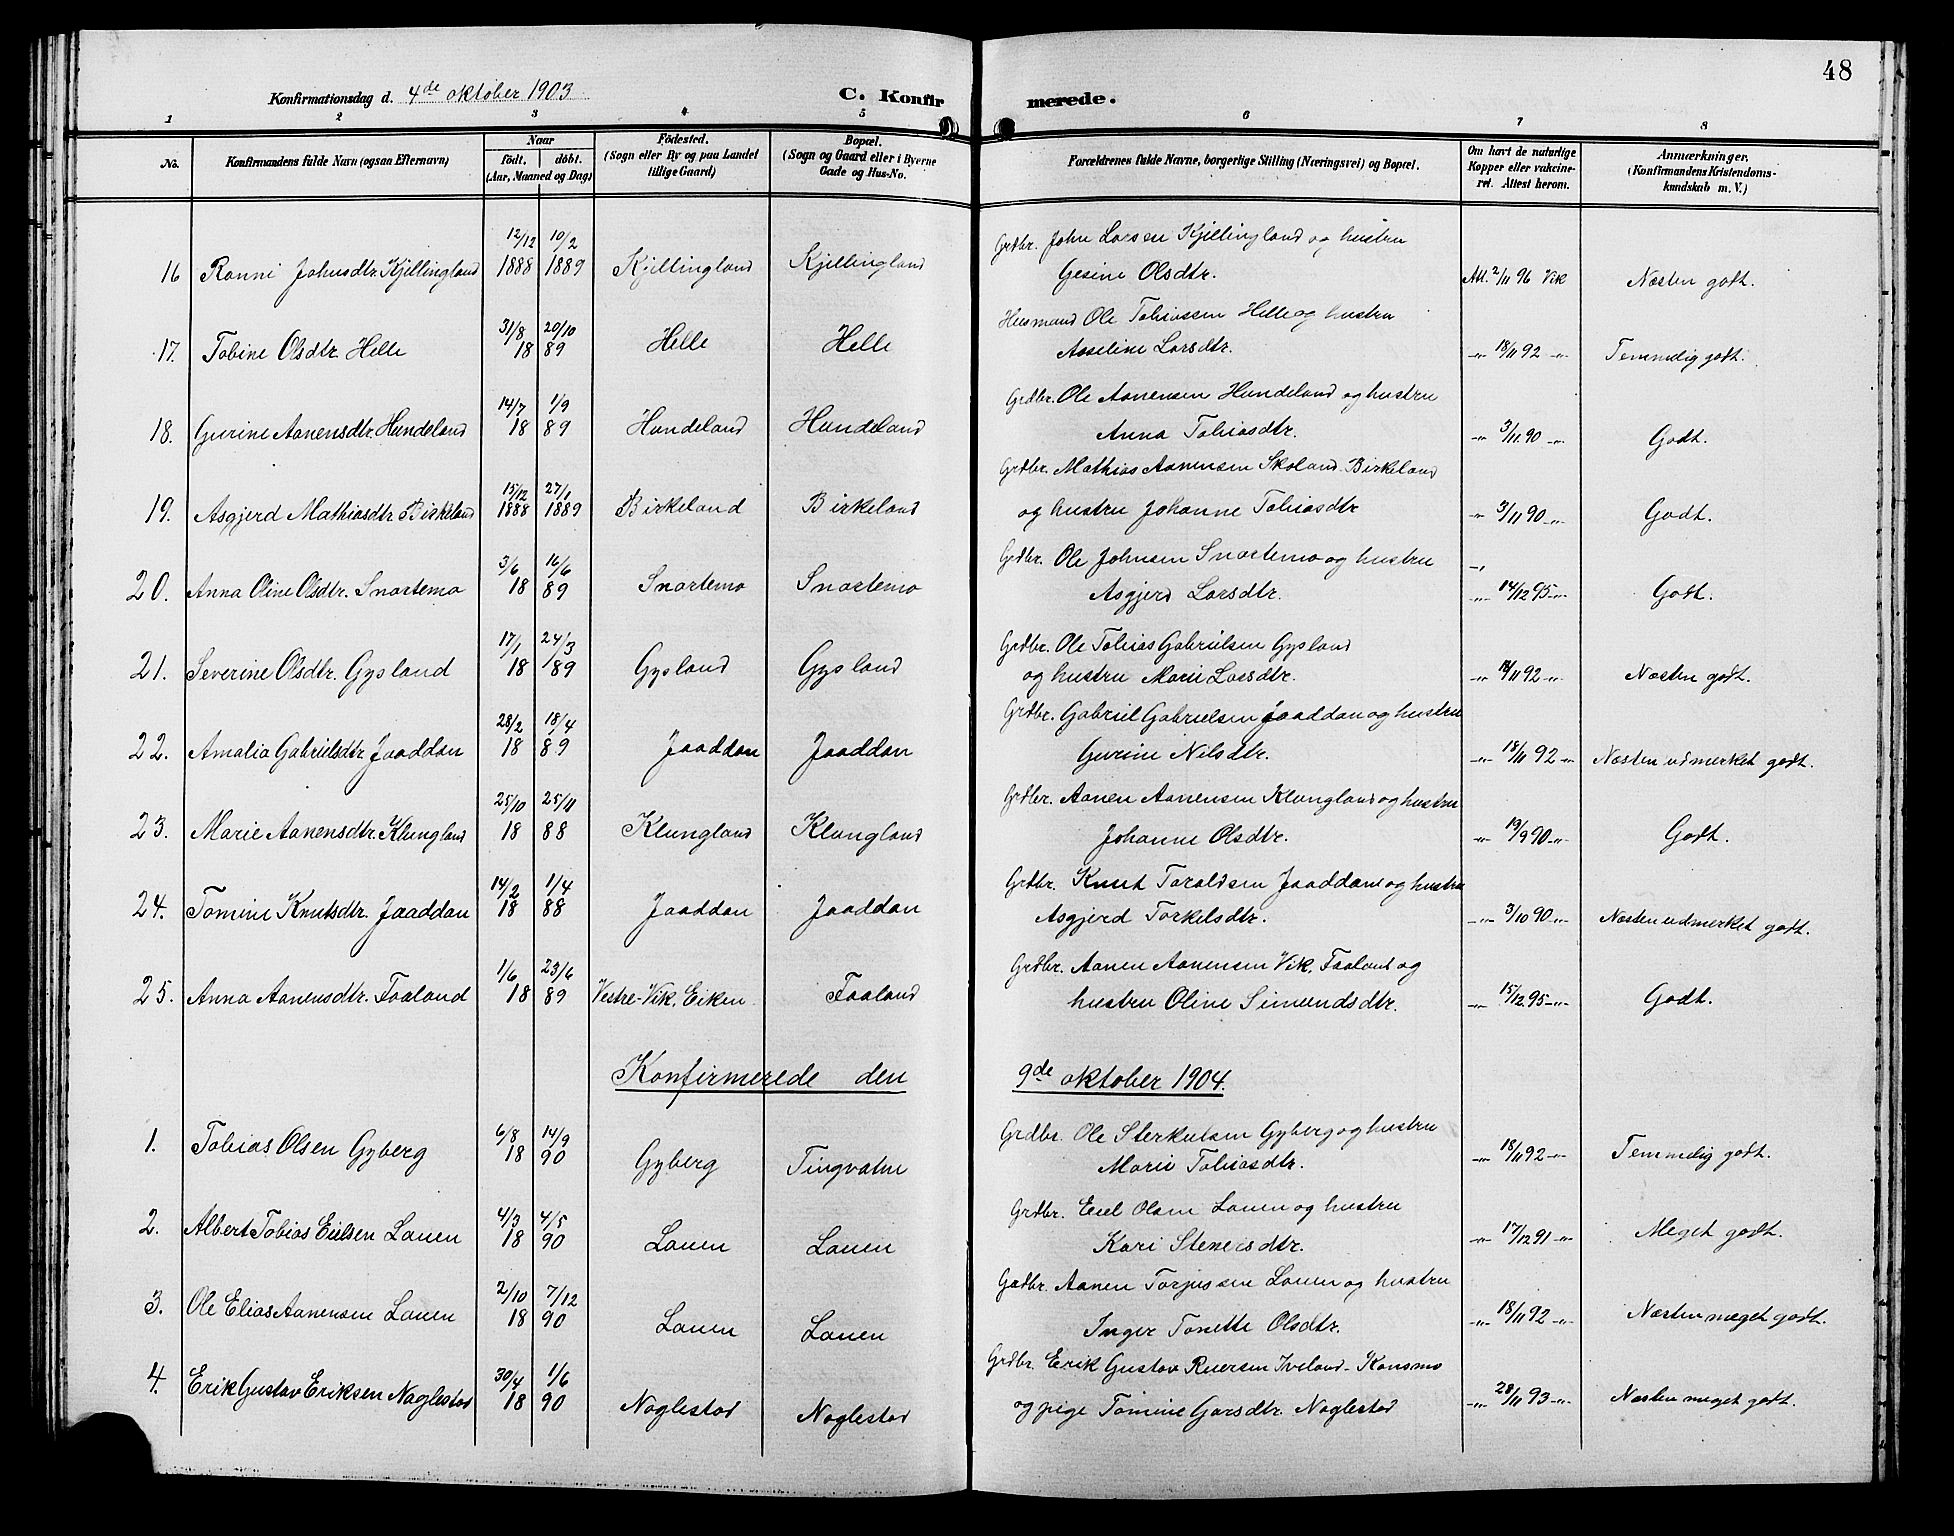 48
Konfirmationsdag d. 4de oktober 1903
C. Konfirmerede.
1 2 3 4 5 6 7 8
No.
Konfirmandens fulde Navn (ogsaa Efternavn)
Naar
födt. döbt.
(Aar, Maaned og Dag)
Födested.
(Sogn eller By og paa Landet
tillige Gaard)
Bopæl.
(Sogn og Gaard eller i Byerne
Gade og Hus-No.
Forældrenes fulde Navne, borgerlige Stilling (Næringsvei) og Bopæl.
Om havt de naturlige
Kopper eller vakcine-
ret. Attest herom.
Anmærkninger.
(Konfirmandens Kristendoms-
kundskab m. V.)
12/12 10/2 Grdbr. John Larsen Kjellingland og hustru
16 Ranni Johnsdtr. Kjellingland 1888 1889 Kjellingland Kjellingland Gesine Olsdtr. Att. 2/11 96 Vik Næsten godt.
31/8 20/10 Husmand Ole Tobiassen Helle og hustru
17. Tobine Olsdtr. Helle 18 89 Helle Helle Asseline Larsdtr. -"- 18/11 92 -"- Temmelig godt.
14/7 1/9 Grdbr. Ole Aanensen Hundeland og hustru
18. Gurine Aanensdtr. Hundeland 18 89 Hundeland Hundeland Anna Tobiasdtr. -"- 3/11 90 -"- Godt.
15/12 27/1 Grdbr. Mathias Aanensen Skoland-Birkeland
19. Asgjerd Mathiasdtr. Birkeland 1888 1889 Birkeland Birkeland og hustru Johanne Tobiasdtr -"- 3/11 90 -"- Godt.
3/6 16/6 Grdbr. Ole Johnsen Snartemo og hustru
20. Anna Oline Olsdtr. Snartemo 18 89 Snartemo Snartemo Asgjerd Larsdtr. -"- 14/12 95 -"- Godt.
17/1 24/3 Grdbr. Ole Tobias Gabrielsen Gysland
21. Severine Olsdtr. Gysland 18 89 Gysland Gysland og hustru Marie Larsdtr. -"- /11 92 -"- Næsten godt.
28/2 18/4 Grdbr. Gabriel Gabrielsen Jaaddan og hustru
22. Amalia Gabrielsdtr. Jaaddan 18 89 Jaaddan Jaaddan Gurine Nilsdtr. -"- 18/11 92 -"- Næsten udmerket godt.
25/10 25/11 Grdbr. Aanen Aanensen Klungland og hustru
23. Marie Aanensdtr. Klungland 18 88 Klungland Klungland Johanne Olsdtr. -"- 19/9 90 -"- Godt.
14/2 1/4 Grdbr. Knut Taraldsen Jaaddan og hustru
24. Tomine Knutsdtr. Jaaddan 18 88 Jaaddan Jaaddan Asgjerd Torkelsdtr. -"- 3/10 90 -"- Næsten udmerket godt.
1/6 23/6 Grdbr. Aanen Aanensen Vik, Faaland og
25. Anna Aanensdtr. Faaland 18 89 Vestre-Vik, Eiken Faaland hustru Oline Simundsdtr. -"- 15/12 95 -"- Godt.
Konfirmerede den 9de oktober 1904.
6/8 14/9 Grdbr. Ole Sterkulsen Gyberg og hustru
1. Tobias Olsen Gyberg 18 90 Gyberg Tingvatne Marie Tobiasdtr. -"- 18/11 92 -"- Temmelig godt.
4/3 4/5 Grdbr. Eiel Olsen Lauen og hustru
2. Albert Tobias Eielsen Lauen 18 90 Lauen Lauen Kari Stenersdtr. -"- 17/12 91 -"- Meget godt.
2/10 7/12 Grdbr. Aanen Torjussen Lauen og hustru
3. Ole Elias Aanensen Lauen 18 90 Lauen Lauen Inger Tonette Olsdtr. -"- 18/11 92 -"- Næsten meget godt.
30/4 1/6 Grdbr. Erik Gustav Reiersen Iveland-Konsmo
4. Erik Gustav Eriksen Naglestad 18 90 Naglestad Naglestad og pige Tomine Garsdtr. Naglestad -"- 28/11 93 -"- Næsten meget godt.